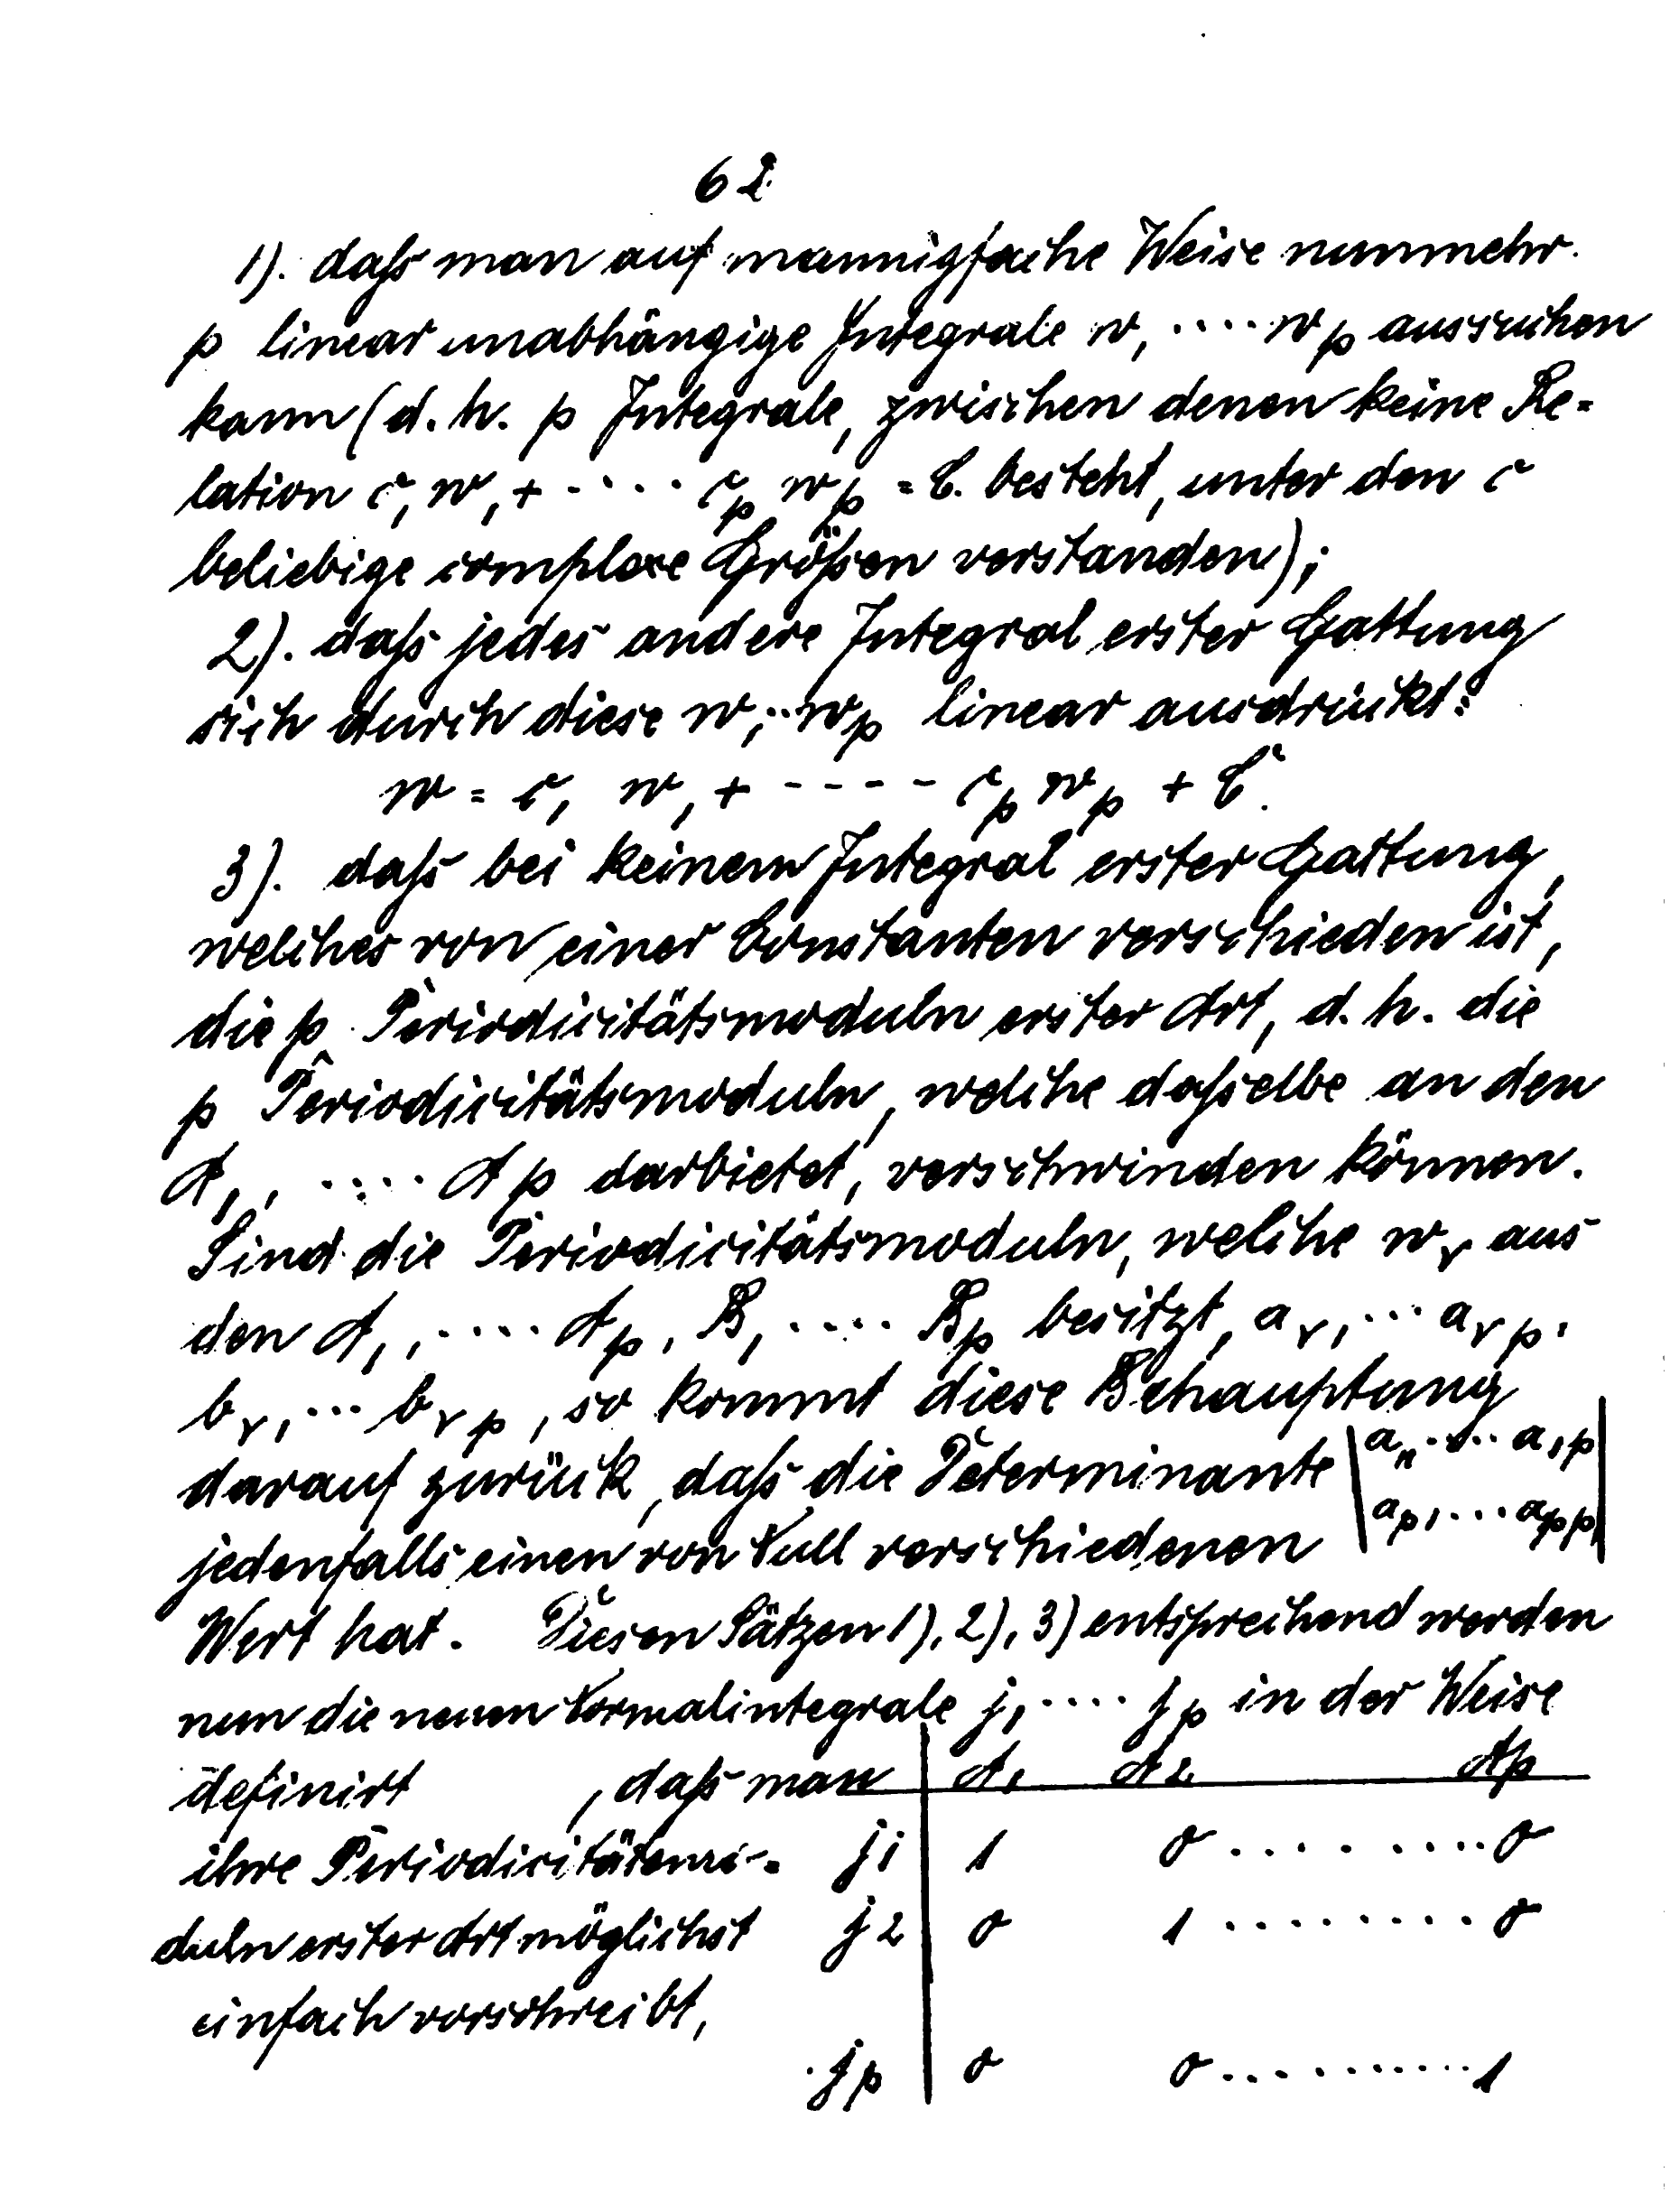 62
1). daß man auf mannigfache Weise nunmehr
p linear unabhängige Integrale w₁ .... w_p aussuchen
kann (d. h. p Integrale, zwischen denen keine Re-
lation c₁ w₁ + ..... c_p w_p = C. besteht, unter den c
beliebige complexe Größen verstanden);
2). daß jedes andere Integral erster Gattung
sich durch diese w₁..w_p linear ausdrückt:
w = c₁ w₁ + ----- c_p w_p + C.
3). daß bei keinem Integral erster Gattung,
welches von einer Constanten verschieden ist,
die p Periodicitätsmoduln erster Art, d. h. die
p Periodicitätsmoduln, welche daßelbe an den
A₁, ..... A_p darbietet, verschwinden können.
Sind die Periodicitätsmoduln, welche w_γ aus
den A₁, ..... A_p, B₁ ..... B_p besitzt, a_γ₁ ... a_γp,
b_γ₁ ... b_γp, so kommt diese Behauptung
darauf zurück, daß die Determinante | a₁₁ .... a₁p |
jedenfalls einen von Null verschiedenen | a_p₁ .... a_pp |
Wert hat. Diesen Sätzen 1), 2), 3) entsprechend werden
nun die neuen Normalintegrale j₁ .... j_p in der Weise
definirt , daß man A₁ A₂ A_p
ihre Periodicitätsmo- j₁ 1 0 ......... 0
duln erster Art möglichst j₂ 0 1 ......... 0
einfach vorschreibt,
j_p 0 0 .......... 1